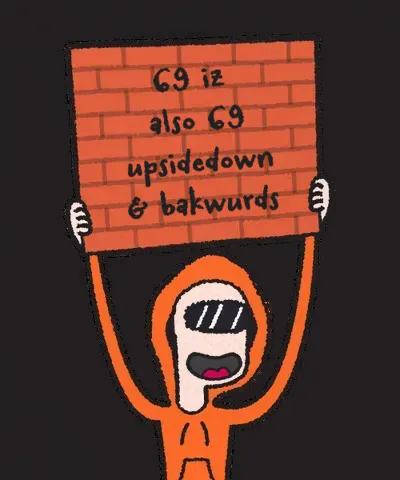 69 iz
also 69
upsidedown
& bakwurds